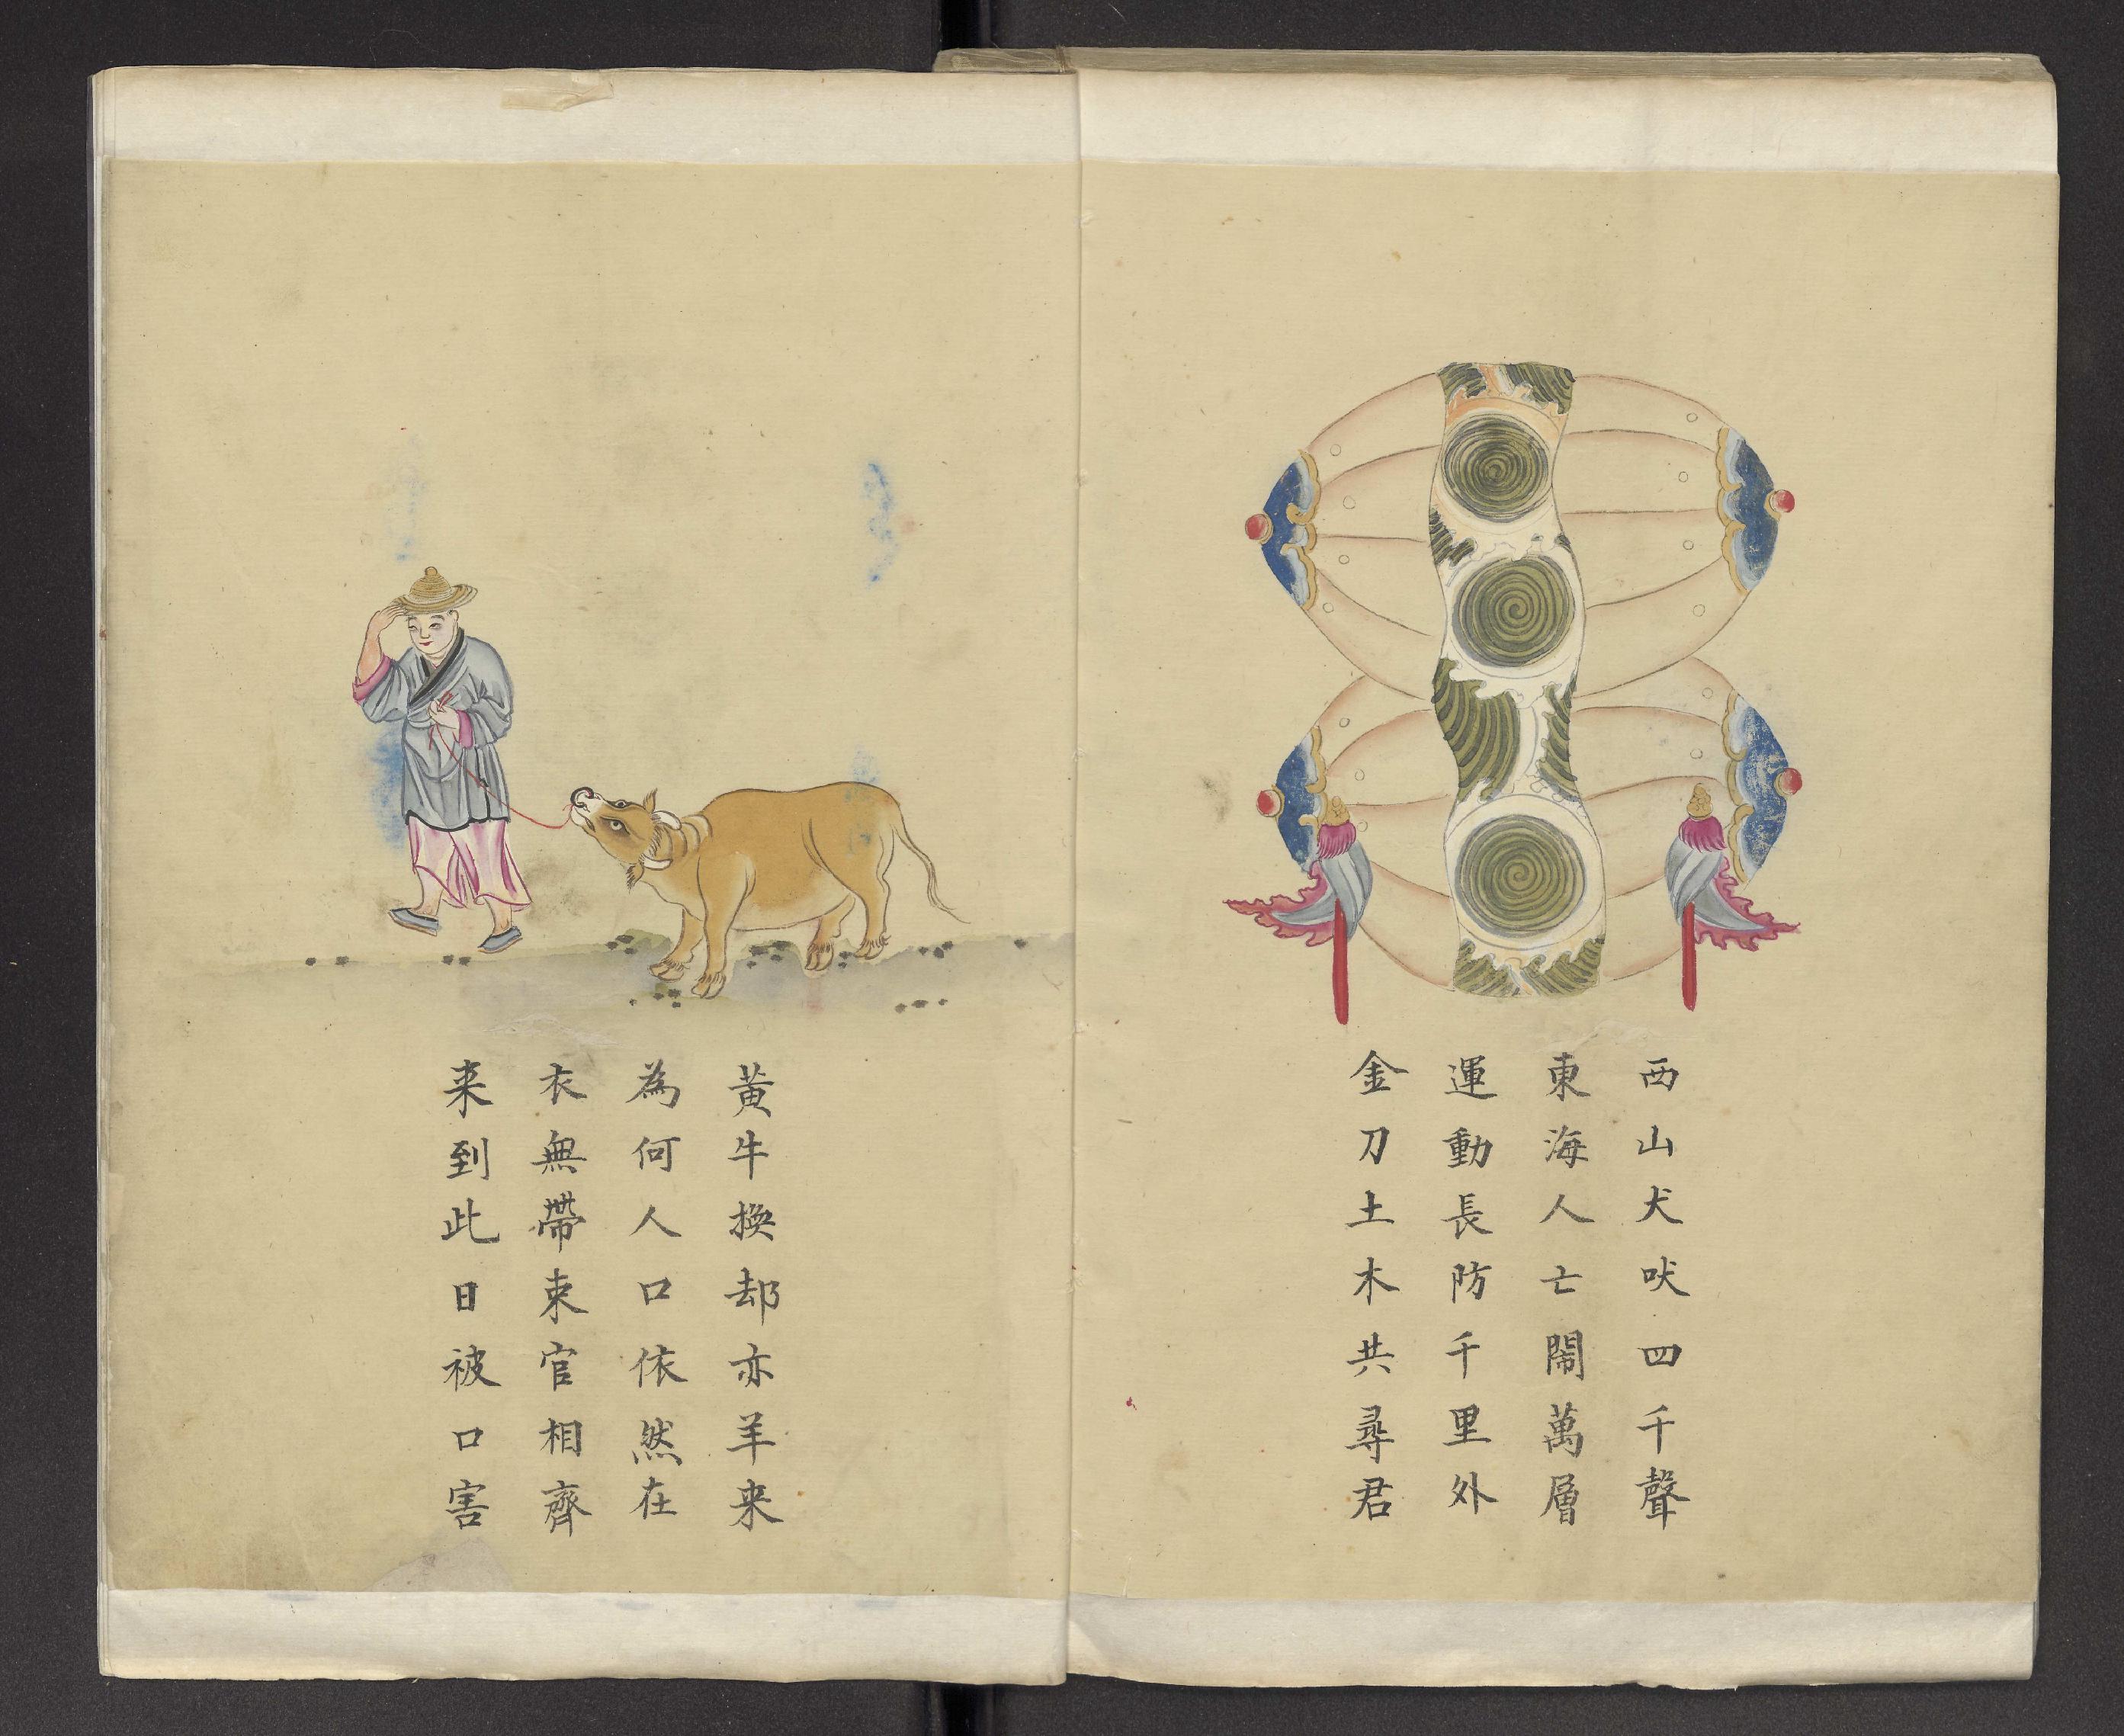 西山犬吠四千聲
東海人亡鬧萬層
運動長防千里外
金刀土木共尋君
黃牛換却亦羊来
為何人口依然在
衣無帶束官相齊
来到此日被口害